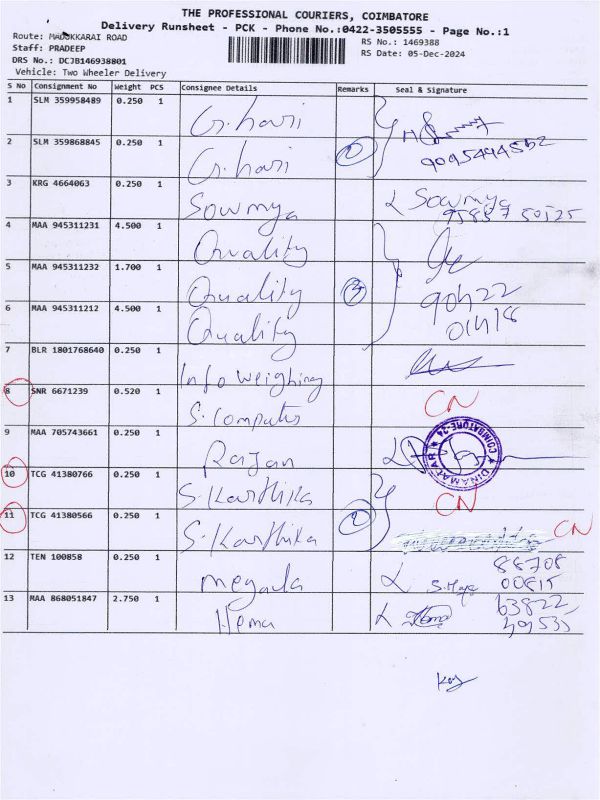 THE PROFESSIONAL COURIERS, COIMBATORE
Delivery Runsheet - PCK - Phone No.:0422-3505555 - Page No.:1
Route: MADUKKARAI ROAD
RS No.: 1469388
Staff: PRADEEP
RS Date: 05-Dec-2024
DRS No.: DCJB146938801
Vehicle: Two Wheeler Delivery
S No Consignment No Weight PCS Consignee Details Remarks Seal & Signature
1 SLM 359958489 0.250 1 G.hari
2 SLM 359868845 0.250 1 G.hari 2 9095444552
3 KRG 4664063 0.250 1 Sowmya Sowmya
4 MAA 945311231 4.500 1 Quality
5 MAA 945311232 1.700 1 Quality 3 90422
6 MAA 945311212 4.500 1 Quality 01418
7 BLR 1801768640 0.250 1 Info Weighing
8 SNR 6671239 0.520 1 S. Computer CN
9 MAA 705743661 0.250 1 Rajan DINAMALAR COIMBATORE-24
10 TCG 41380766 0.250 1 S. Karthika CN
11 TCG 41380566 0.250 1 S. Karthika 2 CN
12 TEN 100858 0.250 1 megala 88708
00815
13 MAA 868051847 2.750 1 Hema Hema 63822